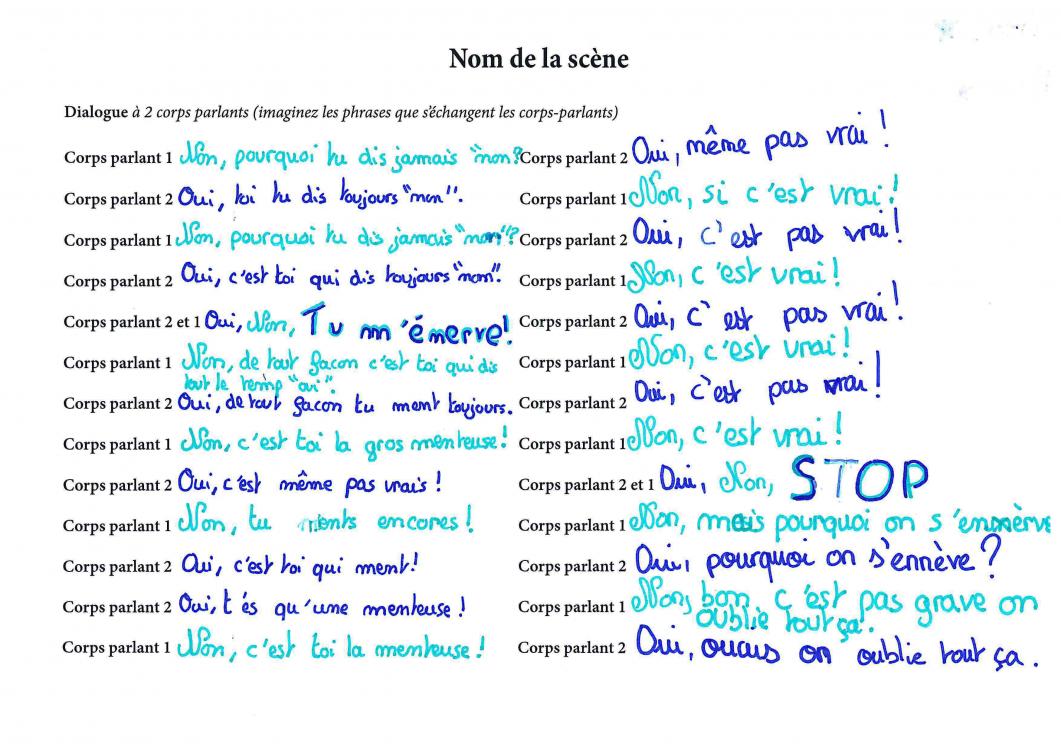 Nom de la scène
Dialogue à 2 corps parlants (imaginez les phrases que s'échangent les corps-parlants)
Corps parlant 1 Non, pourquoi tu dis jamais "mon?
Corps parlant 2 Oui, toi tu dis toujours "mon".
Corps parlant 1 Non, pourquoi tu dis jamais "mon"?
Corps parlant 2 Oui, c'est toi qui dis toujours "mon".
Corps parlant 2 et 1 Oui, Non, Tu m'émerve!
Corps parlant 1 Non, de tout façon c'est toi qui dis
tout le temp "oui".
Corps parlant 2 Oui, de tout façon tu ment toujours.
Corps parlant 1 Non, c'est toi la gros menteuse!
Corps parlant 2 Oui, c'est même pas vrais!
Corps parlant 1 Non, tu ments encores!
Corps parlant 2 Oui, c'est toi qui ment!
Corps parlant 2 Oui, t és qu'une menteuse!
Corps parlant 1 Non, c'est toi la menteuse!
Corps parlant 2 Oui, même pas vrai!
Corps parlant 1 Non, si c'est vrai!
Corps parlant 2 Oui, c'est pas vrai!
Corps parlant 1 Non, c'est vrai!
Corps parlant 2 Oui, c'est pas vrai!
Corps parlant 1 Non, c'est vrai!
Corps parlant 2 Oui, c'est pas vrai!
Corps parlant 1 Non, c'est vrai!
Corps parlant 2 et 1 Oui, Non, STOP
Corps parlant 1 Non, mais pourquoi on s'ennèrve
Corps parlant 2 Oui, pourquoi on s'ennève?
Corps parlant 1 Non, bon c'est pas grave on
oublie tout ça.
Corps parlant 2 Oui, ouais on oublie tout ça.